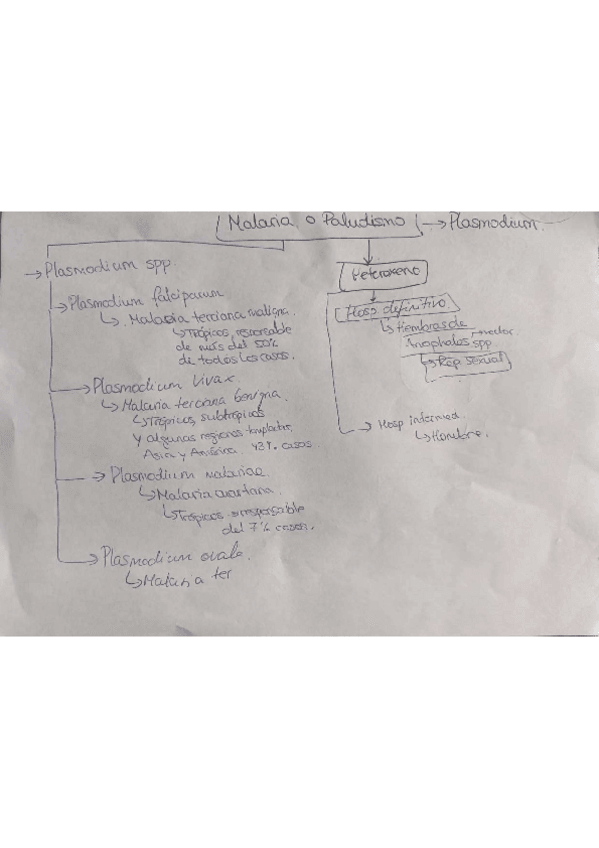 Malaria o Paludismo → Plasmodium
→ Plasmodium spp.
→ Plasmodium falciparum
↳ Malaria terciana maligna.
↳ Trópicos, responsable
de más del 50%
de todos los casos.
→ Plasmodium Vivax.
↳ Malaria terciana benigna.
↳ Trópicos, subtrópicos
y algunas regiones templadas,
Asia y América 43% casos.
→ Plasmodium malariae.
↳ Malaria cuartana.
↳ Trópicos responsable
del 7% casos.
→ Plasmodium ovale.
↳ Malaria ter
Heteroxeno
Hosp definitivo
↳ Hembras de
Anopheles spp. → vector.
↳ Rep. sexual
→ Hosp intermed.
↳ Hombre.